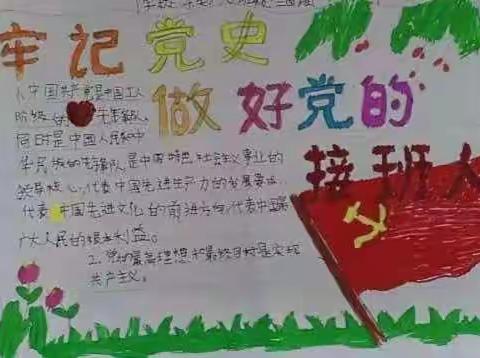 牢记党史
做好党的
接班人
1、中国共产党是中国工人
阶级的先锋队,
同时是中国人民和中
华民族的先锋队是中国特色社会主义事业的
领导核心,代表中国先进生产力的发展要求,
代表中国先进文化的前进方向,代表中国最
广大人民的根本利益。
2、党的最高理想和最终目标是实现
共产主义。